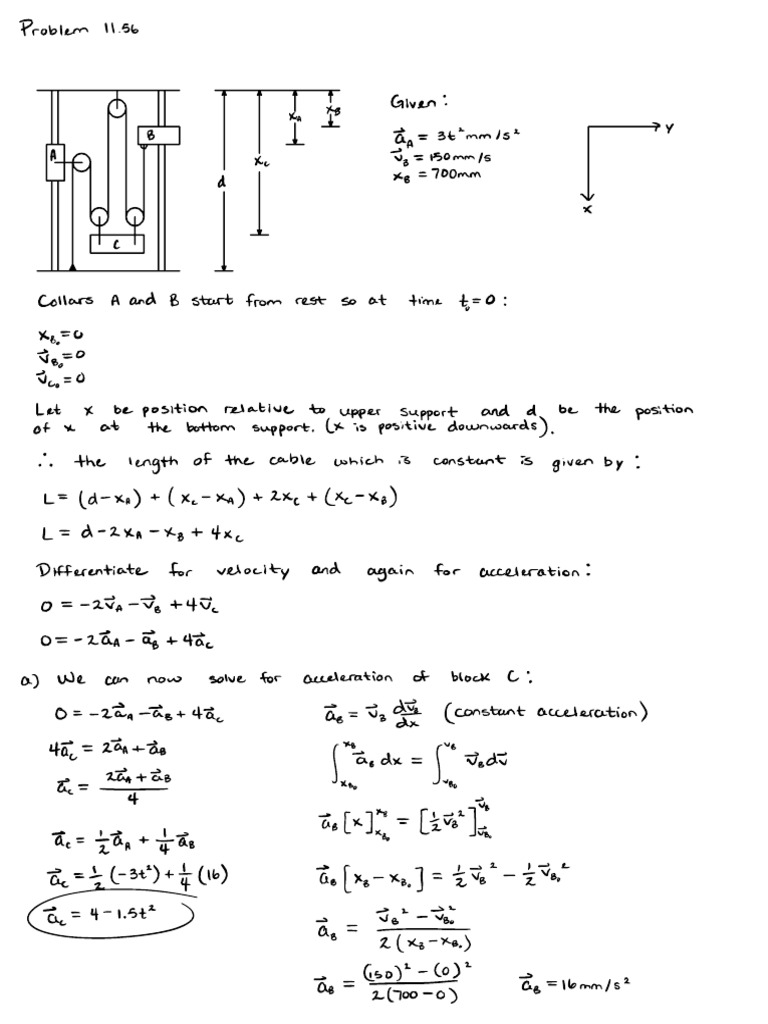 Problem 11.56
A
B
C
d
x_C
x_A
x_B
Given:
a⃗_A = 3t² mm/s²
v⃗_B = 150mm/s
x_B = 700mm
Y
x
Collars A and B start from rest so at time t₀=0:
x_B₀=0
v⃗_B₀=0
v⃗_C₀=0
Let x be position relative to upper support and d be the position
of x at the bottom support. (x is positive downwards).
∴ the length of the cable which is constant is given by:
L = (d-x_A) + (x_C-x_A) + 2x_C + (x_C-x_B)
L = d-2x_A-x_B+4x_C
Differentiate for velocity and again for acceleration:
0 = -2v⃗_A-v⃗_B+4v⃗_C
0 = -2a⃗_A-a⃗_B+4a⃗_C
a) We can now solve for acceleration of block C:
0 = -2a⃗_A-a⃗_B+4a⃗_C
4a⃗_C = 2a⃗_A+a⃗_B
a⃗_C = (2a⃗_A+a⃗_B)/4
a⃗_C = 1/2 a⃗_A + 1/4 a⃗_B
a⃗_C = 1/2 (-3t²) + 1/4 (16)
a⃗_C = 4-1.5t²
a⃗_B = v⃗_B dv⃗_B/dx (constant acceleration)
∫_{x_B₀}^{x_B} a⃗_B dx = ∫_{v_B₀}^{v_B} v⃗_B dv⃗
a⃗_B [x]_{x_B₀}^{x_B} = [1/2 v⃗_B²]_{v⃗_B₀}^{v⃗_B}
a⃗_B [x_B-x_B₀] = 1/2 v⃗_B² - 1/2 v⃗_B₀²
a⃗_B = (v⃗_B² - v⃗_B₀²)/(2(x_B-x_B₀))
a⃗_B = ((150)² - (0)²)/(2(700-0)) a⃗_B = 16mm/s²